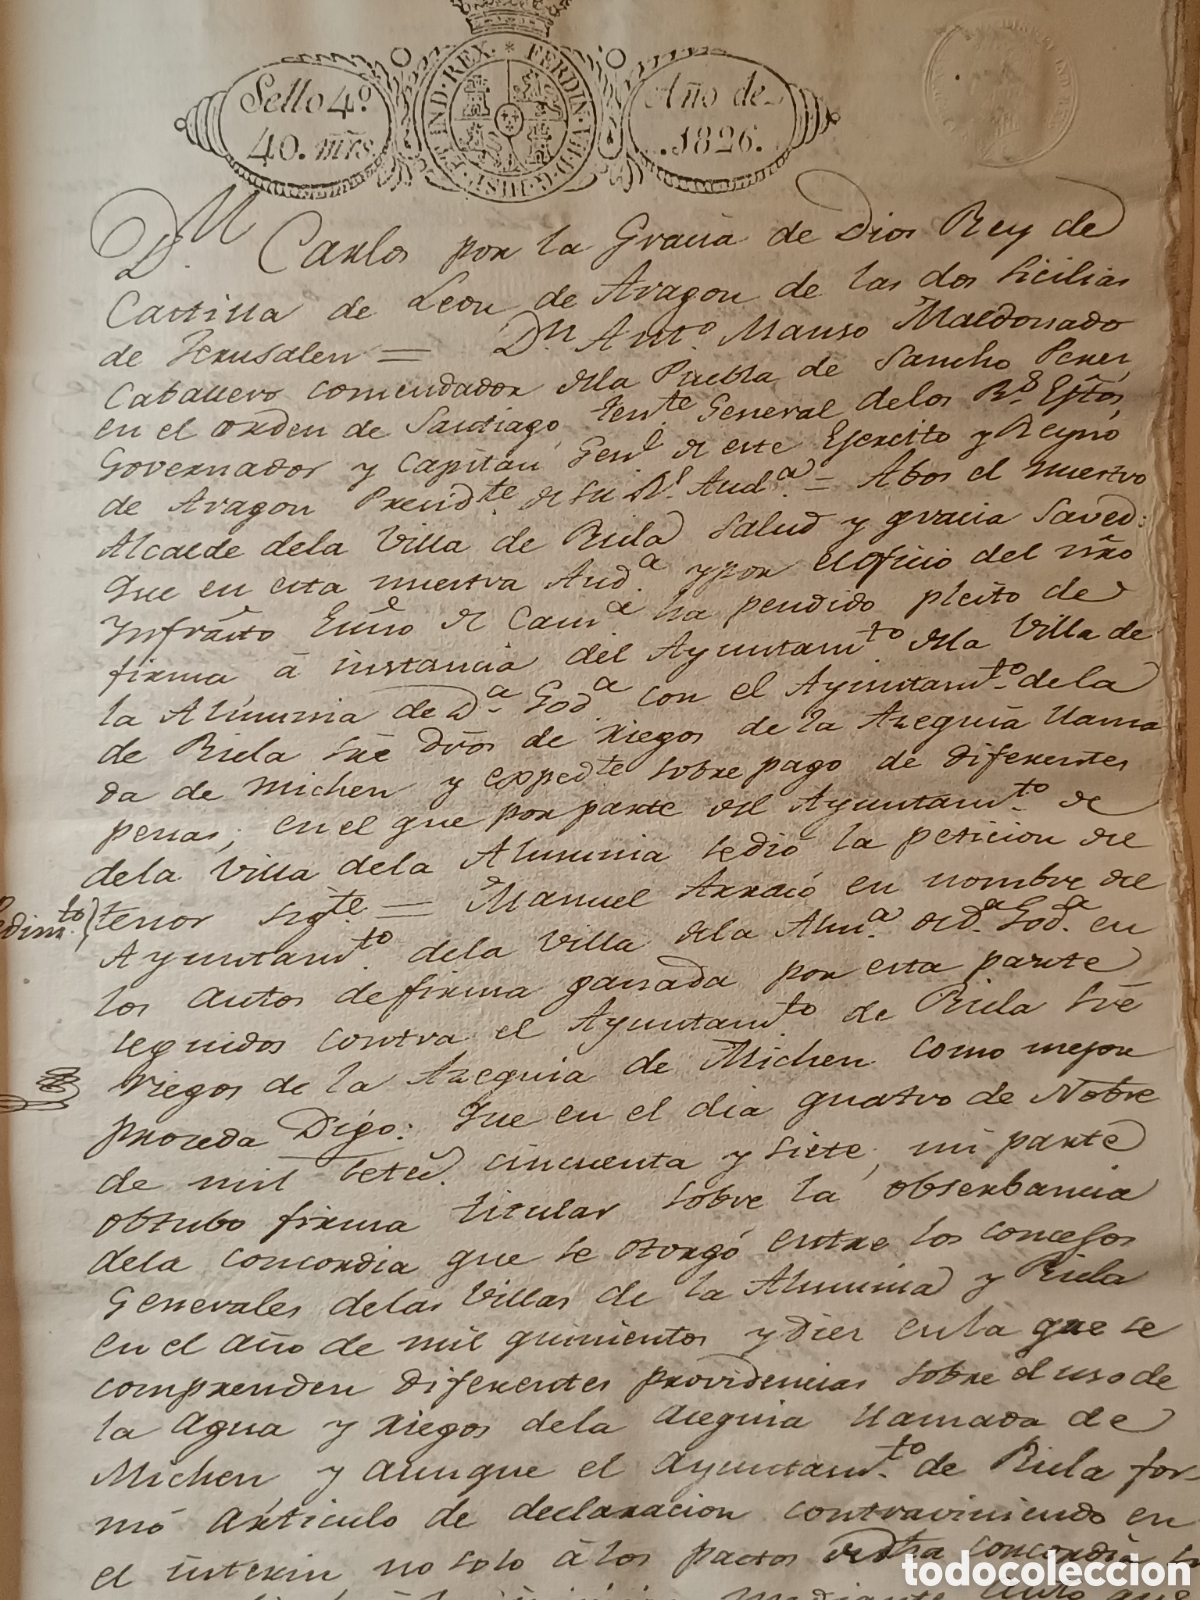 Sello 4º
40. mrs.
FERDIN. VII. D. G. HISP. ET IND. REX.
Año de
1826.
Dn Carlos por la Gracia de Dios Rey de
Castilla de Leon de Aragon de las dos Sicilias
de Jerusalen = Dn Antº Manso Maldonado
Caballero comendador dela Puebla de Sancho Perez
en el orden de Santiago, Tente General delos Rs Extos,
Governador y Capitan Genl de este Ejercito y Reyno
de Aragon Presidte de su Rl Auda = Abos el nuestro
Alcalde dela Villa de Ricla salud y gracia saved:
Que en esta nuestra Auda y por el oficio del nro
Infraito Essno de Cama ha pendido pleito de
firma á instancia del Ayuntamto dela Villa de
la Almunia de Da Goda con el Ayuntamto de la
de Ricla sre dros de riegos de la Azequia llama
da de Michen y expedte sobre pago de diferentes
penas, en el que por parte del Ayuntamto de
dela Villa dela Almunia se dió la peticion del
Pedimto) tenor sigte = Manuel Arraió en nombre del
Ayuntamto dela Villa dela Alma de Da Goda en
los autos de firma ganada por esta parte
seguidos contra el Ayuntamto de Ricla sre
riegos de la Azequia de Michen como mejor
proceda Digo: Que en el dia quatro de Nobre
de mil setec. cincuenta y siete, mi parte
obtubo firma titular sobre la obserbancia
dela concordia que se otorgó entre los concejos
Generales delas Villas de la Almunia y Ricla
en el año de mil quinientos y diez en la que se
comprenden diferentes providencias sobre el uso de
la agua y riegos dela acequia llamada de
Michen, y aunque el ayuntamto de Ricla for-
mó articulo de declaracion contraviniendo en
el interin no solo á los pactos concordia
todocoleccion